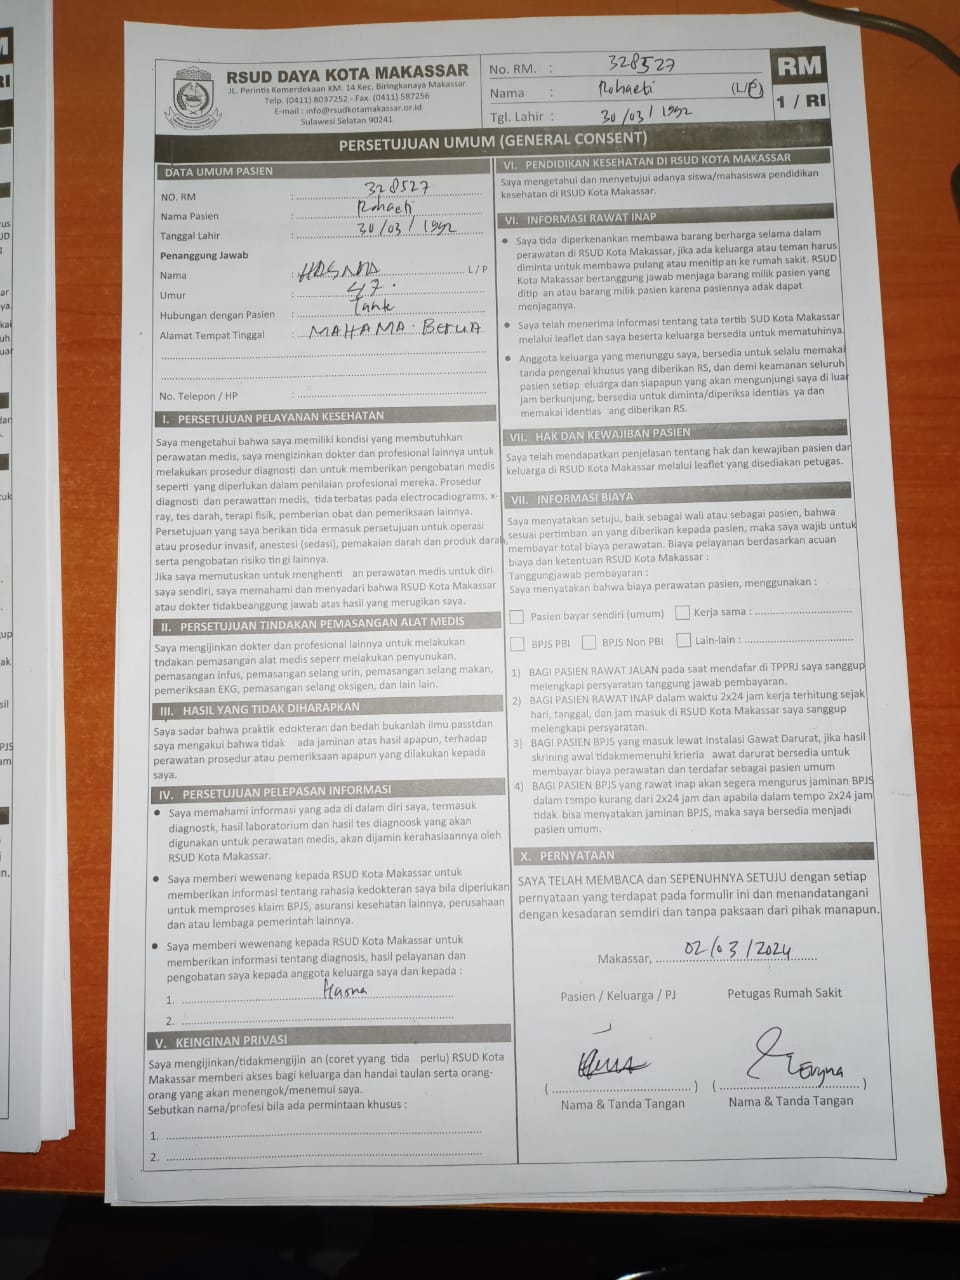 RSUD DAYA KOTA MAKASSAR
JL. Perintis Kemerdekaan KM. 14 Kec. Biringkanaya Makassar
Telp. (0411) 8037252 - Fax. (0411) 587256
E-mail : info@rsudkotamakassar.or.id
Sulawesi Selatan 90241
No. RM. : 328527
Nama : Rohaeti (L/P)
Tgl. Lahir : 30/03/1992
RM
1 / RI
PERSETUJUAN UMUM (GENERAL CONSENT)
DATA UMUM PASIEN
NO. RM : 328527
Nama Pasien : Rohaeti
Tanggal Lahir : 30/03/1992
Penanggung Jawab
Nama : HASNA L / P
Umur : 47.
Hubungan dengan Pasien : Tante
Alamat Tempat Tinggal : MAHAMA BERUA
No. Telepon / HP :
I. PERSETUJUAN PELAYANAN KESEHATAN
Saya mengetahui bahwa saya memiliki kondisi yang membutuhkan
perawatan medis, saya mengizinkan dokter dan profesional lainnya untuk
melakukan prosedur diagnosti dan untuk memberikan pengobatan medis
seperti yang diperlukan dalam penilaian profesional mereka. Prosedur
diagnosti dan perawattan medis, tida terbatas pada electrocadiograms, x-
ray, tes darah, terapi fisik, pemberian obat dan pemeriksaan lainnya.
Persetujuan yang saya berikan tida ermasuk persetujuan untuk operasi
atau prosedur invasif, anestesi (sedasi), pemakaian darah dan produk darah,
serta pengobatan risiko tin gi lainnya.
Jika saya memutuskan untuk menghenti an perawatan medis untuk diri
saya sendiri, saya memahami dan menyadari bahwa RSUD Kota Makassar
atau dokter tidakbeanggung jawab atas hasil yang merugikan saya.
II. PERSETUJUAN TINDAKAN PEMASANGAN ALAT MEDIS
Saya mengijinkan dokter dan profesional lainnya untuk melakukan
tndakan pemasangan alat medis seperr melakukan penyunukan,
pemasangan infus, pemasangan selang urin, pemasangan selang makan,
pemeriksaan EKG, pemasangan selang oksigen, dan lain lain.
III. HASIL YANG TIDAK DIHARAPKAN
Saya sadar bahwa praktik edokteran dan bedah bukanlah ilmu passtdan
saya mengakui bahwa tidak ada jaminan atas hasil apapun, terhadap
perawatan prosedur atau pemeriksaan apapun yang dilakukan kepada
saya.
IV. PERSETUJUAN PELEPASAN INFORMASI
• Saya memahami informasi yang ada di dalam diri saya, termasuk
diagnostk, hasil laboratorium dan hasil tes diagnoosk yang akan
digunakan untuk perawatan medis, akan dijamin kerahasiaannya oleh
RSUD Kota Makassar.
• Saya memberi wewenang kepada RSUD Kota Makassar untuk
memberikan informasi tentang rahasia kedokteran saya bila diperlukan
untuk memproses klaim BPJS, asuransi kesehatan lainnya, perusahaan
dan atau lembaga pemerintah lainnya.
• Saya memberi wewenang kepada RSUD Kota Makassar untuk
memberikan informasi tentang diagnosis, hasil pelayanan dan
pengobatan saya kepada anggota keluarga saya dan kepada :
1. Hasna
2.
V. KEINGINAN PRIVASI
Saya mengijinkan/tidakmengijin an (coret yyang tida perlu) RSUD Kota
Makassar memberi akses bagi keluarga dan handai taulan serta orang-
orang yang akan menengok/menemui saya.
Sebutkan nama/profesi bila ada permintaan khusus :
1.
2.
VI. PENDIDIKAN KESEHATAN DI RSUD KOTA MAKASSAR
Saya mengetahui dan menyetujui adanya siswa/mahasiswa pendidikan
kesehatan di RSUD Kota Makassar.
VI. INFORMASI RAWAT INAP
• Saya tida diperkenankan membawa barang berharga selama dalam
perawatan di RSUD Kota Makassar, jika ada keluarga atau teman harus
diminta untuk membawa pulang atau menitip an ke rumah sakit. RSUD
Kota Makassar bertanggung jawab menjaga barang milik pasien yang
ditip an atau barang milik pasien karena pasiennya adak dapat
menjaganya.
• Saya telah menerima informasi tentang tata tertib SUD Kota Makassar
melalui leaflet dan saya beserta keluarga bersedia untuk mematuhinya.
• Anggota keluarga yang menunggu saya, bersedia untuk selalu memakai
tanda pengenal khusus yang diberikan RS, dan demi keamanan seluruh
pasien setiap eluarga dan siapapun yang akan mengunjungi saya di luar
jam berkunjung, bersedia untuk diminta/diperiksa identias ya dan
memakai identias ang diberikan RS.
VII. HAK DAN KEWAJIBAN PASIEN
Saya telah mendapatkan penjelasan tentang hak dan kewajiban pasien dan
keluarga di RSUD Kota Makassar melalui leaflet yang disediakan petugas.
VII. INFORMASI BIAYA
Saya menyatakan setuju, baik sebagai wali atau sebagai pasien, bahwa
sesuai pertimban an yang diberikan kepada pasien, maka saya wajib untuk
membayar total biaya perawatan. Biaya pelayanan berdasarkan acuan
biaya dan ketentuan RSUD Kota Makassar :
Tanggungjawab pembayaran :
Saya menyatakan bahwa biaya perawatan pasien, menggunakan :
Pasien bayar sendiri (umum) Kerja sama :
BPJS PBI BPJS Non PBI Lain-lain :
1) BAGI PASIEN RAWAT JALAN pada saat mendafar di TPPRJ saya sanggup
melengkapi persyaratan tanggung jawab pembayaran.
2) BAGI PASIEN RAWAT INAP dalam waktu 2x24 jam kerja terhitung sejak
hari, tanggal, dan jam masuk di RSUD Kota Makassar saya sanggup
melengkapi persyaratan.
3) BAGI PASIEN BPJS yang masuk lewat Instalasi Gawat Darurat, jika hasil
skrining awal tidakmemenuhi krieria awat darurat bersedia untuk
membayar biaya perawatan dan terdafar sebagai pasien umum
4) BAGI PASIEN BPJS yang rawat inap akan segera mengurus jaminan BPJS
dalam tempo kurang dari 2x24 jam dan apabila dalam tempo 2x24 jam
tidak bisa menyatakan jaminan BPJS, maka saya bersedia menjadi
pasien umum.
X. PERNYATAAN
SAYA TELAH MEMBACA dan SEPENUHNYA SETUJU dengan setiap
pernyataan yang terdapat pada formulir ini dan menandatangani
dengan kesadaran semdiri dan tanpa paksaan dari pihak manapun.
Makassar, 02/03/2024
Pasien / Keluarga / PJ Petugas Rumah Sakit
Nama & Tanda Tangan Nama & Tanda Tangan